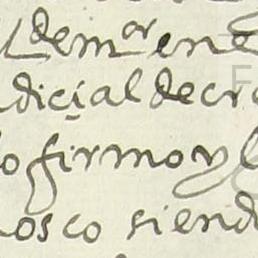 demor en e
dicial decr
o firmo y l
osco siend